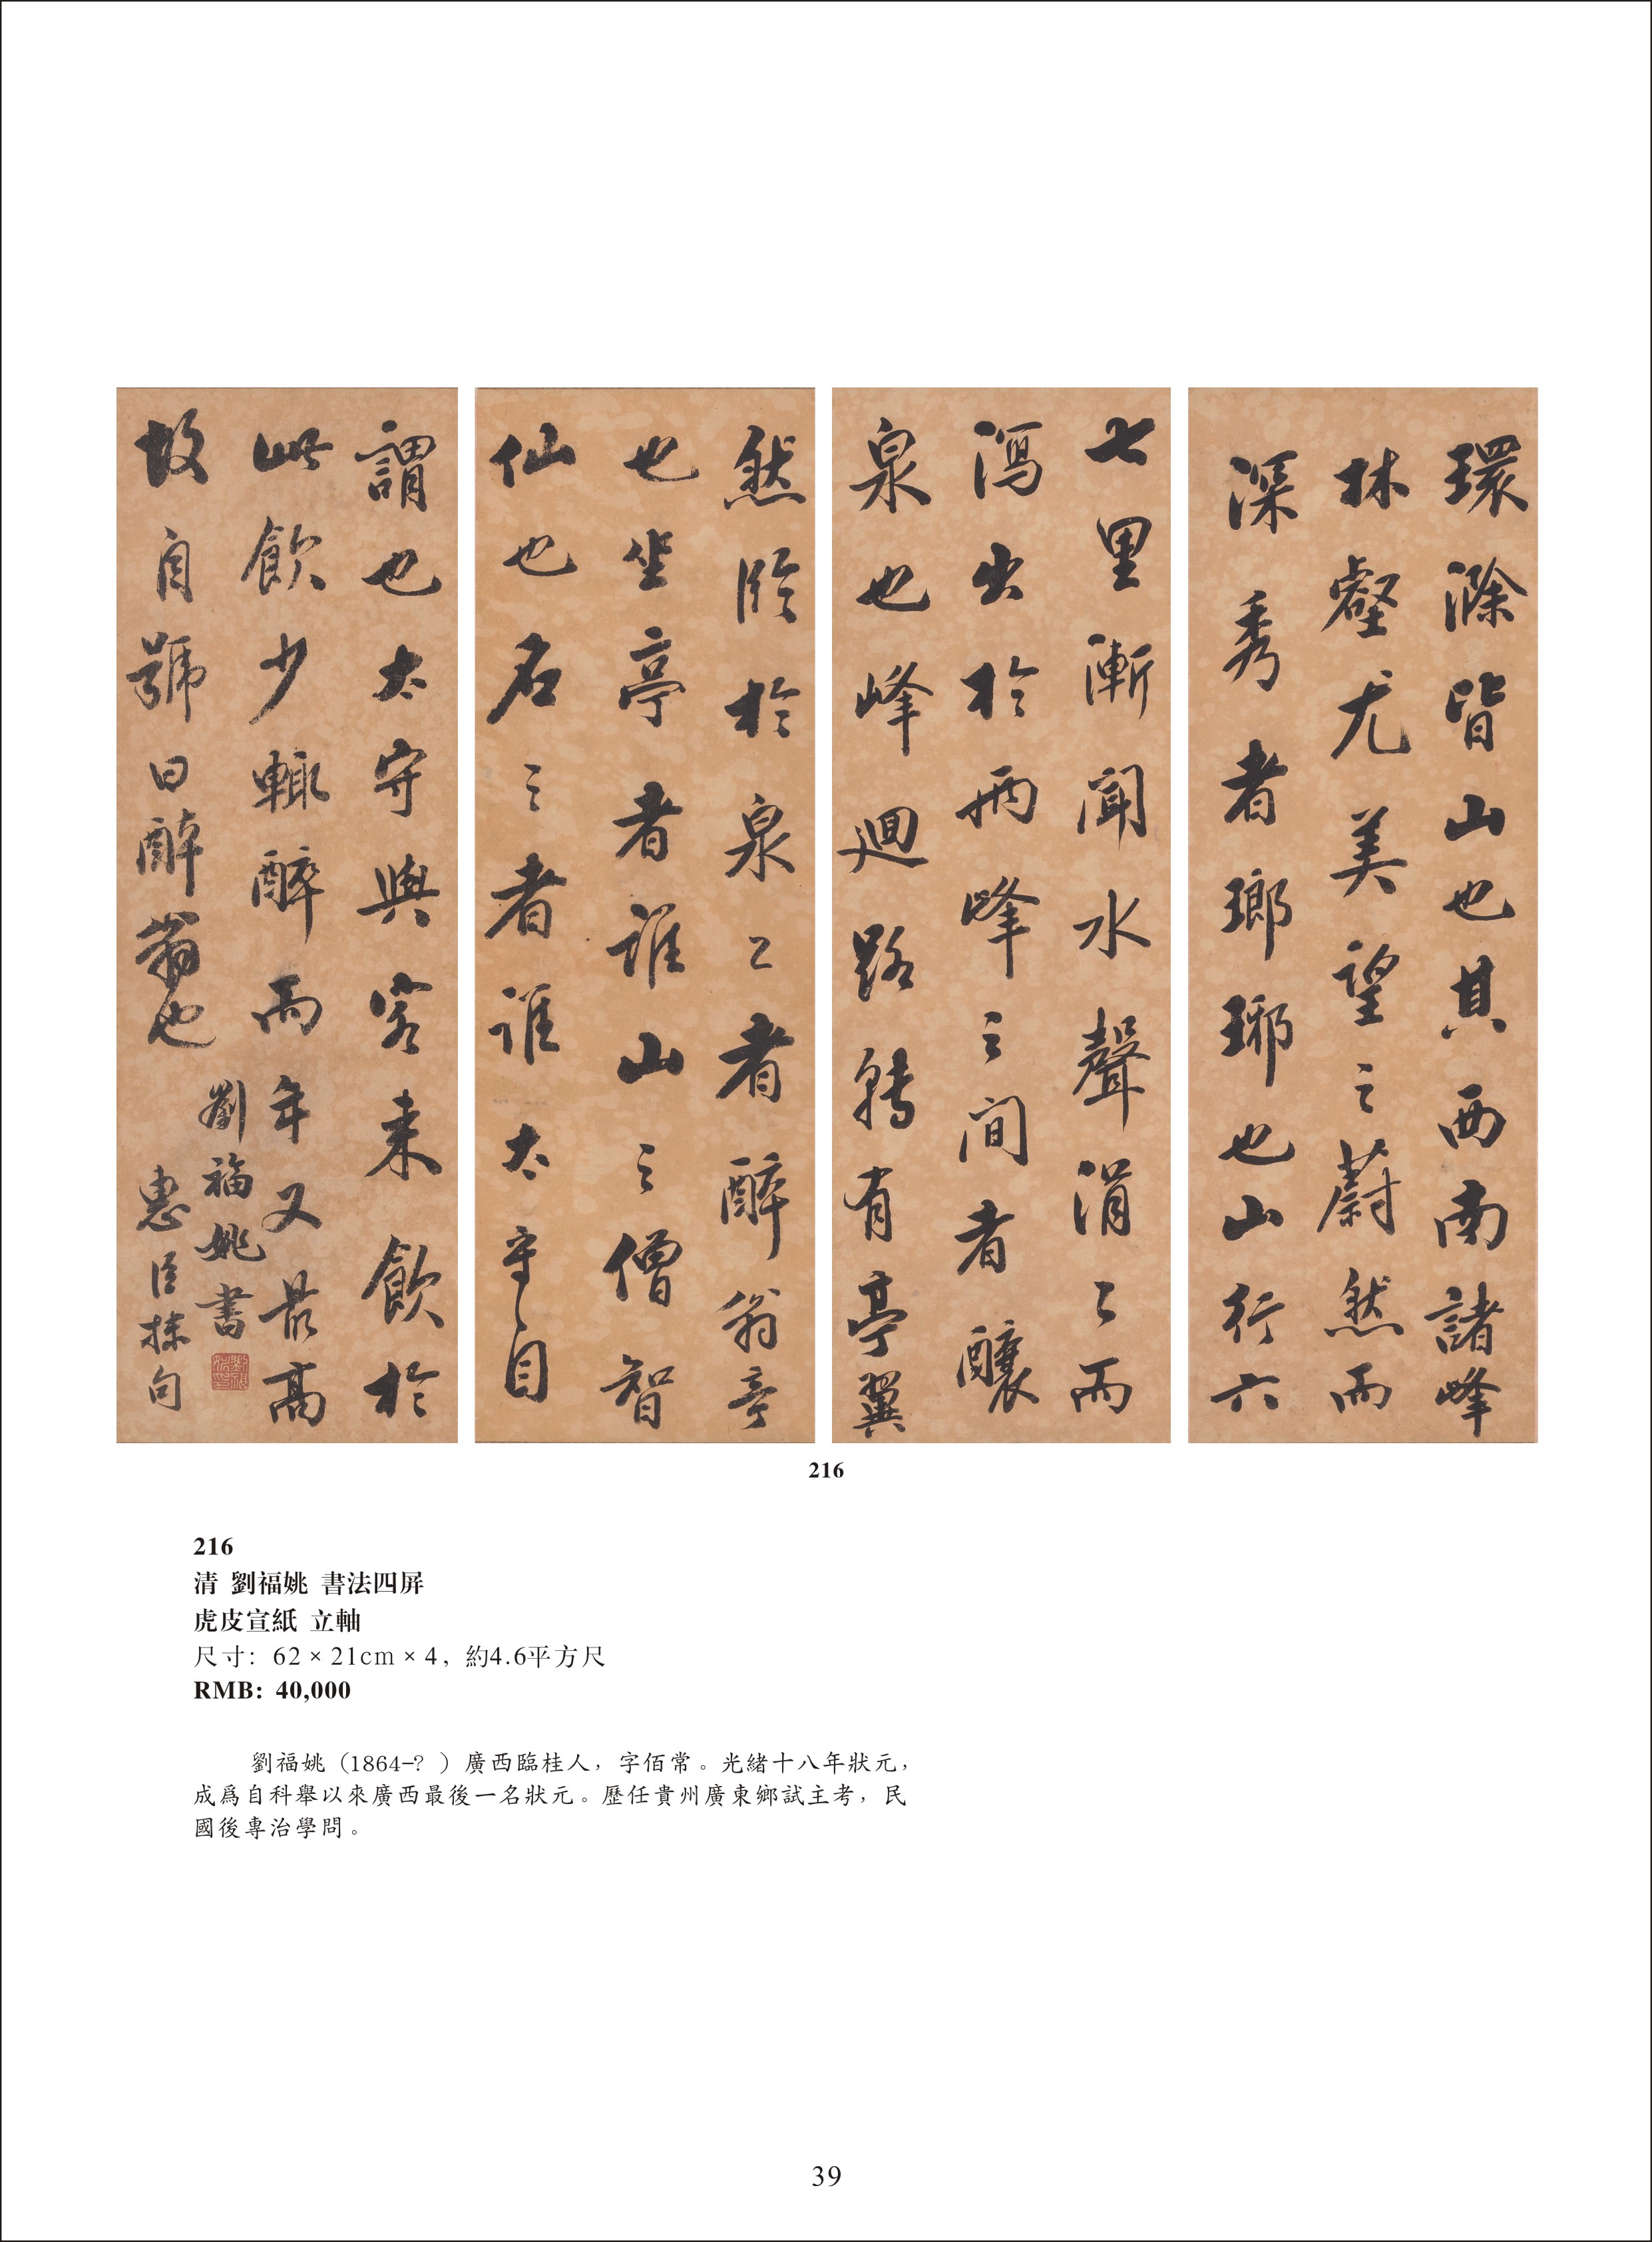 環滁皆山也其西南諸峰
林壑尤美望之蔚然而
深秀者瑯琊也山行六
七里漸聞水聲涓〻而
瀉出於兩峰之間者釀
泉也峰迴路轉有亭翼
然臨於泉〻者醉翁亭
也坐亭者誰山之僧智
仙也名之者誰太守〻自
謂也太守與客來飲於
此飲少輒醉而年又最高
故自號曰醉翁也
惠臣句
劉福姚書
216
216
清 劉福姚 書法四屏
虎皮宣紙 立軸
尺寸：62×21cm×4，約4.6平方尺
RMB: 40,000
劉福姚（1864-？）廣西臨桂人，字佰常。光緒十八年狀元，
成爲自科舉以來廣西最後一名狀元。歷任貴州廣東鄉試主考，民
國後專治學問。
39